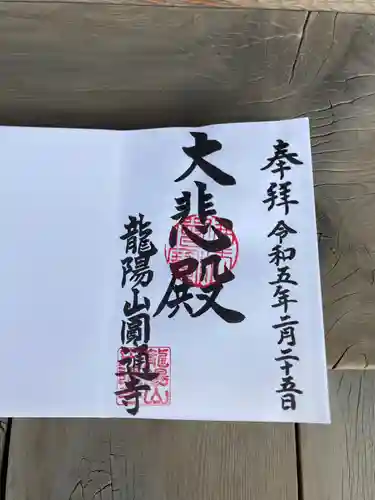 奉拝 令和五年二月二十五日
大悲殿
龍陽山圓通寺